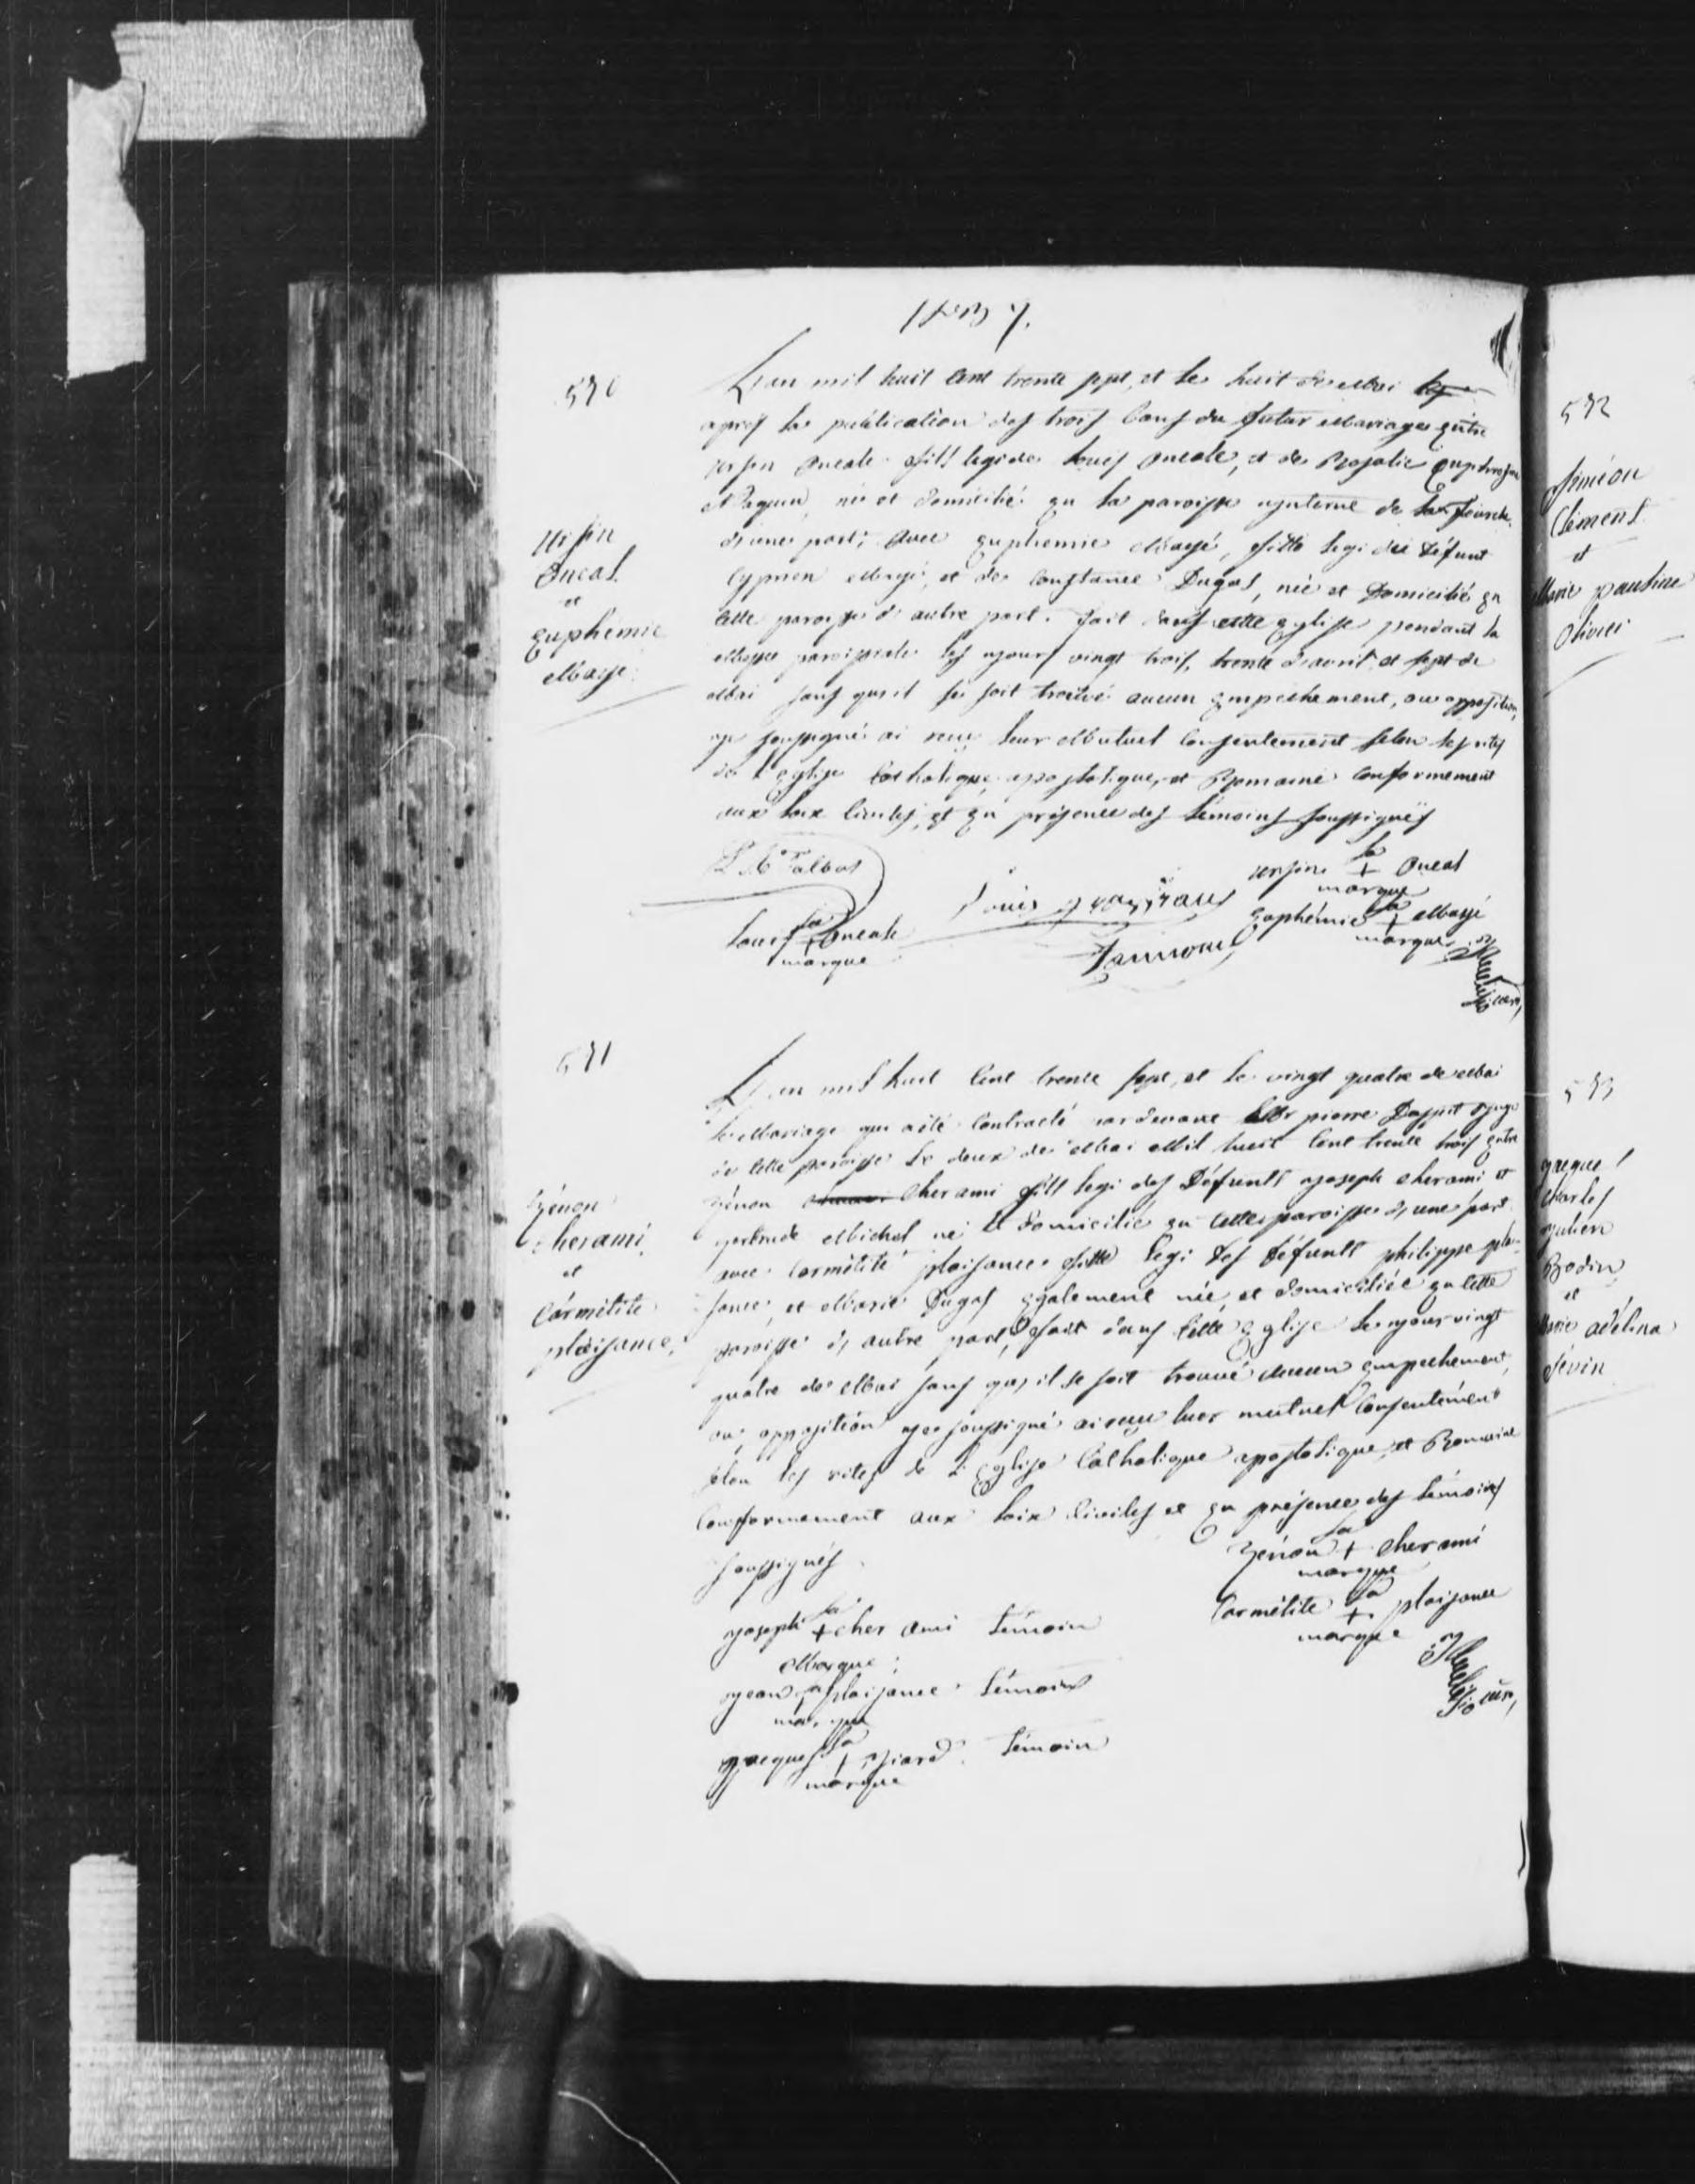 1837.
570
Ursin
Oneal
et
Euphémie
Massé
L'an mil huit Cent trente sept, et le huit de Mai
après la publication des trois bans du futur Mariage Entre
Ursin Oneale fils legi de Louis Oneale, et de Rosalie
né et domicilié En la paroisse
d'une part; avec Euphemie Massé, fille legi de défunt
Cyprien Massé, et de Constance Dugas, née et Domicilié En
Cette paroisse d'autre part. fait dans cette Eglise pendant la
Messe paroissiale les jours vingt trois, trente d'avril et sept de
Mai sans qu'il se soit trouvé aucun Empechement, ou opposition,
je soussigné ai reçu leur Mutuel Consentement selon les rites
de l'Eglise Catholique, apostolique, et Romaine Conformement
aux Loix Civiles, et En présence des témoins soussignés
Talbot
Ursin + Oneal
sa marque
Euphémie + Massé
sa marque
Louis + Oneale
sa marque
571
Zénon
Cherami
et
Carmélite
plaisance
L'an mil huit Cent trente sept, et le vingt quatre de Mai
le Mariage qui a été Contracté pardevant Mr pierre juge
de Cette paroisse le deux de Mai Mil huit Cent trente trois Entre
Zénon Cherami fils legi des Défunts joseph Cherami et
gertrude Michel né et domicilié En Cette paroisse d'une part
avec Carmélité plaisance fille legi des défunts philippe plai-
sance, et Marie Dugas Egalement née, et domiciliée En Cette
paroisse d'autre part, fait dans Cette Eglise le jour vingt
quatre de Mai sans qu'il se soit trouvé aucun Empechement,
ou opposition je soussigné ai reçu leur mutuel Consentement
selon les rites de l'Eglise Catholique apostolique, et Romaine
Conformement aux Loix Civiles et En présence des témoins
soussignés
Zénon + Cherami
sa marque
Carmélite + plaisance
sa marque
joseph + Cher ami témoin
sa Marque
jean + plaisance témoin
sa marque
jacques + témoin
sa marque
572
Siméon
Clément
et
Marie pauline
Olivier
573
jaque
Charles
julien
Bodin
et
Marie adélina
Sévin